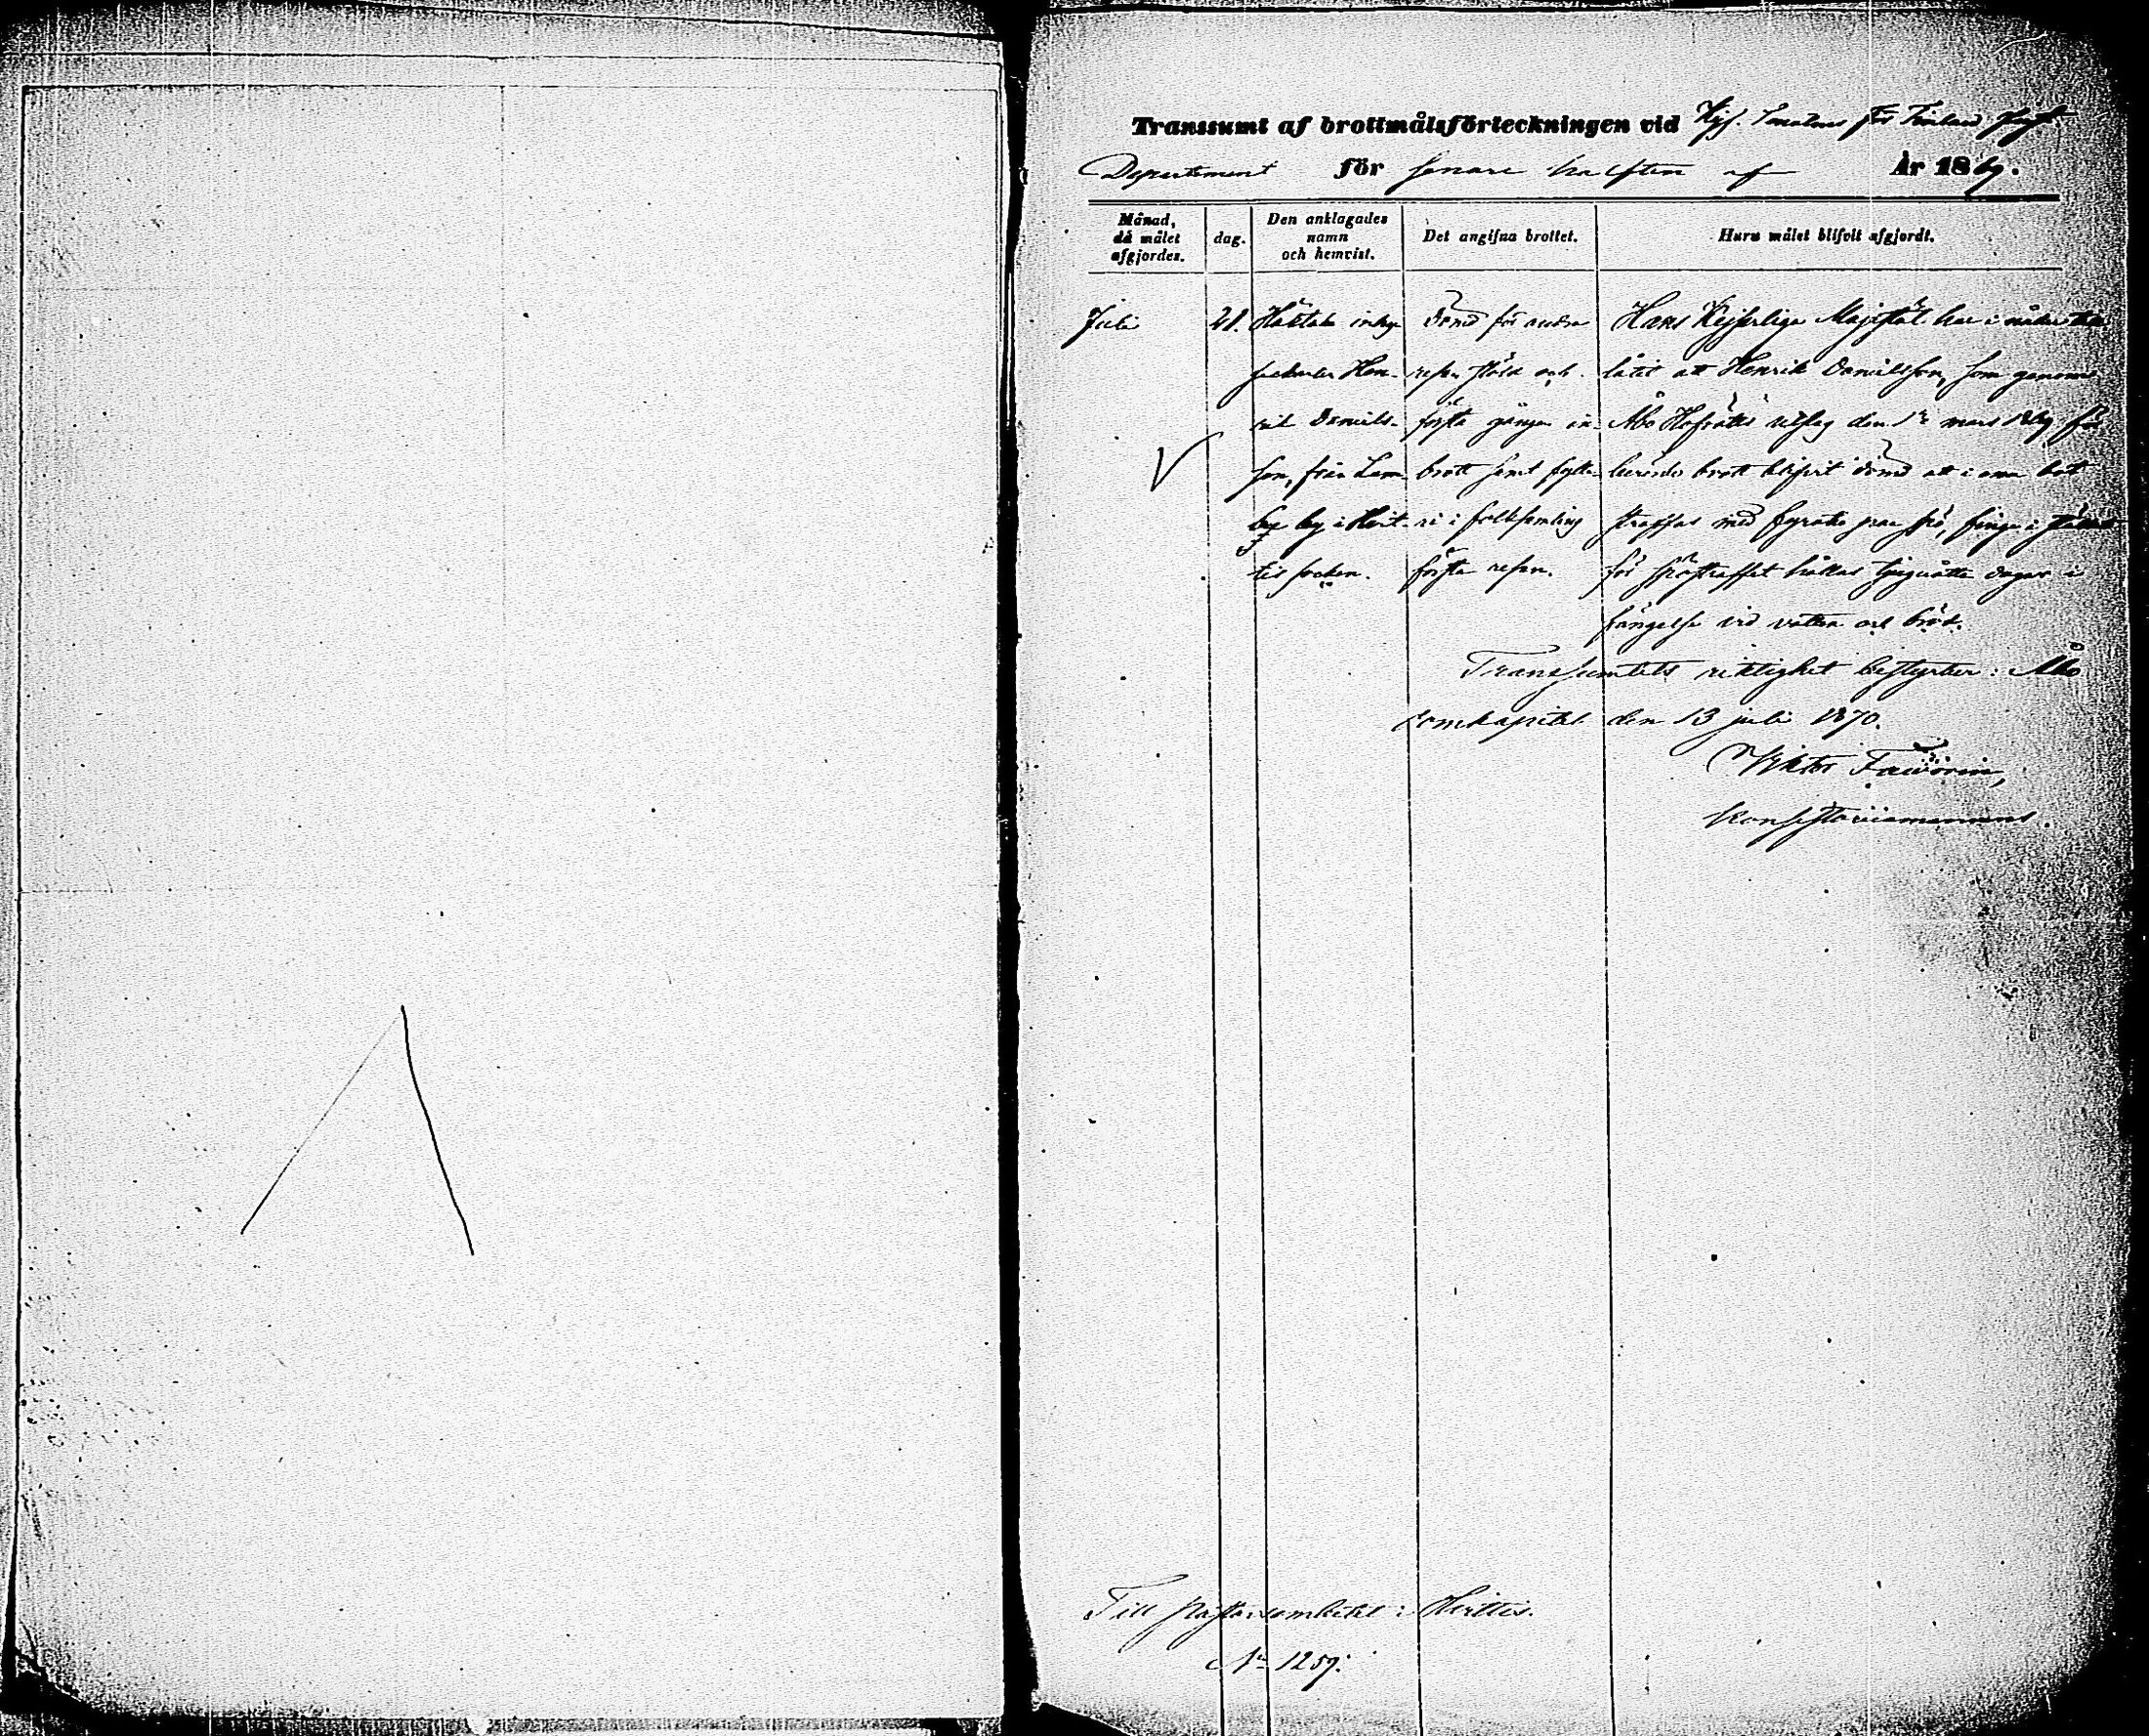 Transsumt af brottmålsförteckningen vid Kejs. Senatens för Finland
Departement för senare hälften af År 1869.
Månad,
då målet
afgjordes.
dag.
Den anklagades
namn
och hemvist.
Det angifna brottet.
Huru målet blifvit afgjordt.
Juli
21.
Häktade inhyses
Hen-
rik Daniels-
son, från Lam-
by by i Hvit-
tis socken.
dömd för andra
resan stöld och
första gången in-
brott samt fylle-
ri i folksamling
första resan.
Hans Kejserliga Majestät har i nåder till-
låtit att Henrik Danielsson, som genom
Åbo Hofrätts utslag den 12 mars 1869 för
berörde brott blifvit dömd att i ena bot
straffas med fyratio par spö, finge i stället
för spöstraffet hållas tjuguåtta dagar i
fängelse vid vatten och bröd.
Transsumtets riktighet bestyrker: Åbo
domkapitel den 13 juli 1870.
Viktor Fawörin,
Konsistoriiamanuens.
Till pastorsembetet i Hvittis.
No 1259.